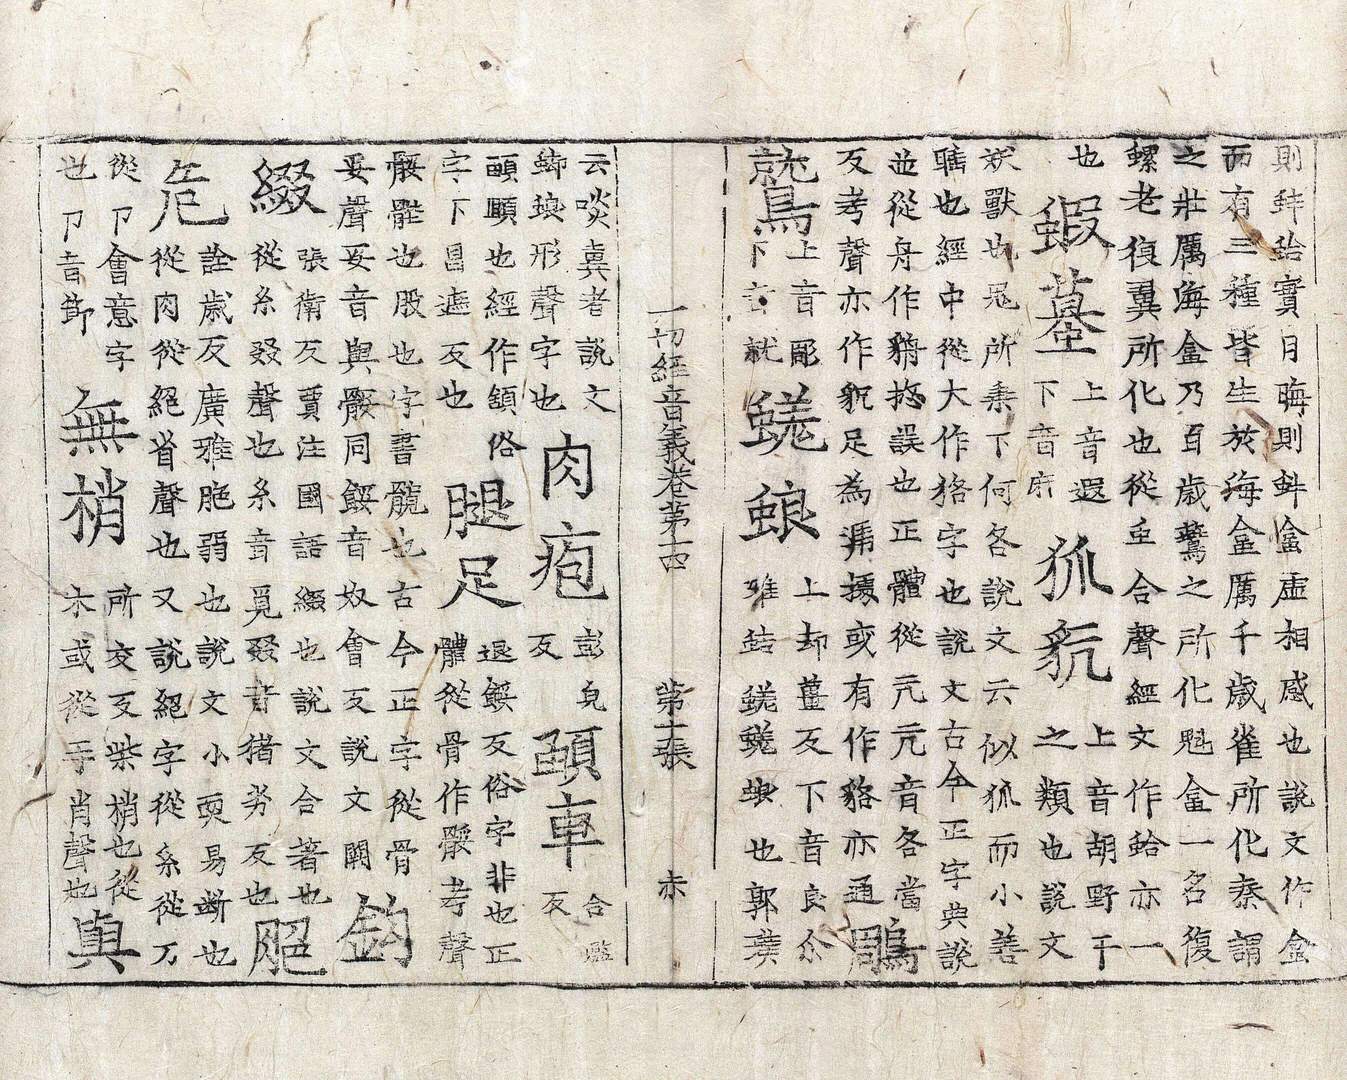 則蚌蛤實月晦則蚌盒虛相感也說文作盒
而有三種皆生於海盒厲千歲雀所化秦謂
之壯厲海盒乃百歲鷰之所化魁盒一名復
螺老復翼所化也從虫合聲經文作蛤亦一
也 蝦蟇 上音遐下音麻 狐貁 上音胡野干之類也說文
䄏獸也鬼所乘下何各說文云似狐而小善
睡也經中從犬作狢字也說文古今正字典說
並從舟作貈捴誤也正體從亢亢音各當
反考聲亦作貌足為準據或有作貉亦通 鵰
鷲 上音彫下音就 蜣蜋 上却薑反下音良尒雅蛣蜣蜣蜋也郭璞
一切經音義卷第十四 第十張 赤
云啖糞者說文
蜣蜋形聲字也 肉疱 彭皃反 頤車 合鑑反
頤順也經作頷俗
字下昌遮反也 腿足 退餒反俗字非也正體從骨作骽考聲
骽䏶也股也字書髖也古今正字從骨
妥聲妥音與骽同餒音奴會反說文闕 鉤
綴 張衛反賈注國語綴也說文合著也
從糸叕聲也糸音覓叕音猪劣反也 脃
危 詮歲反廣雅脃弱也說文小耎易斷也
從肉從絕省聲也又說絕字從糸從刀
從卪會意字
也卪音節 無梢 所交反柴梢也從木或從手肖聲也 真